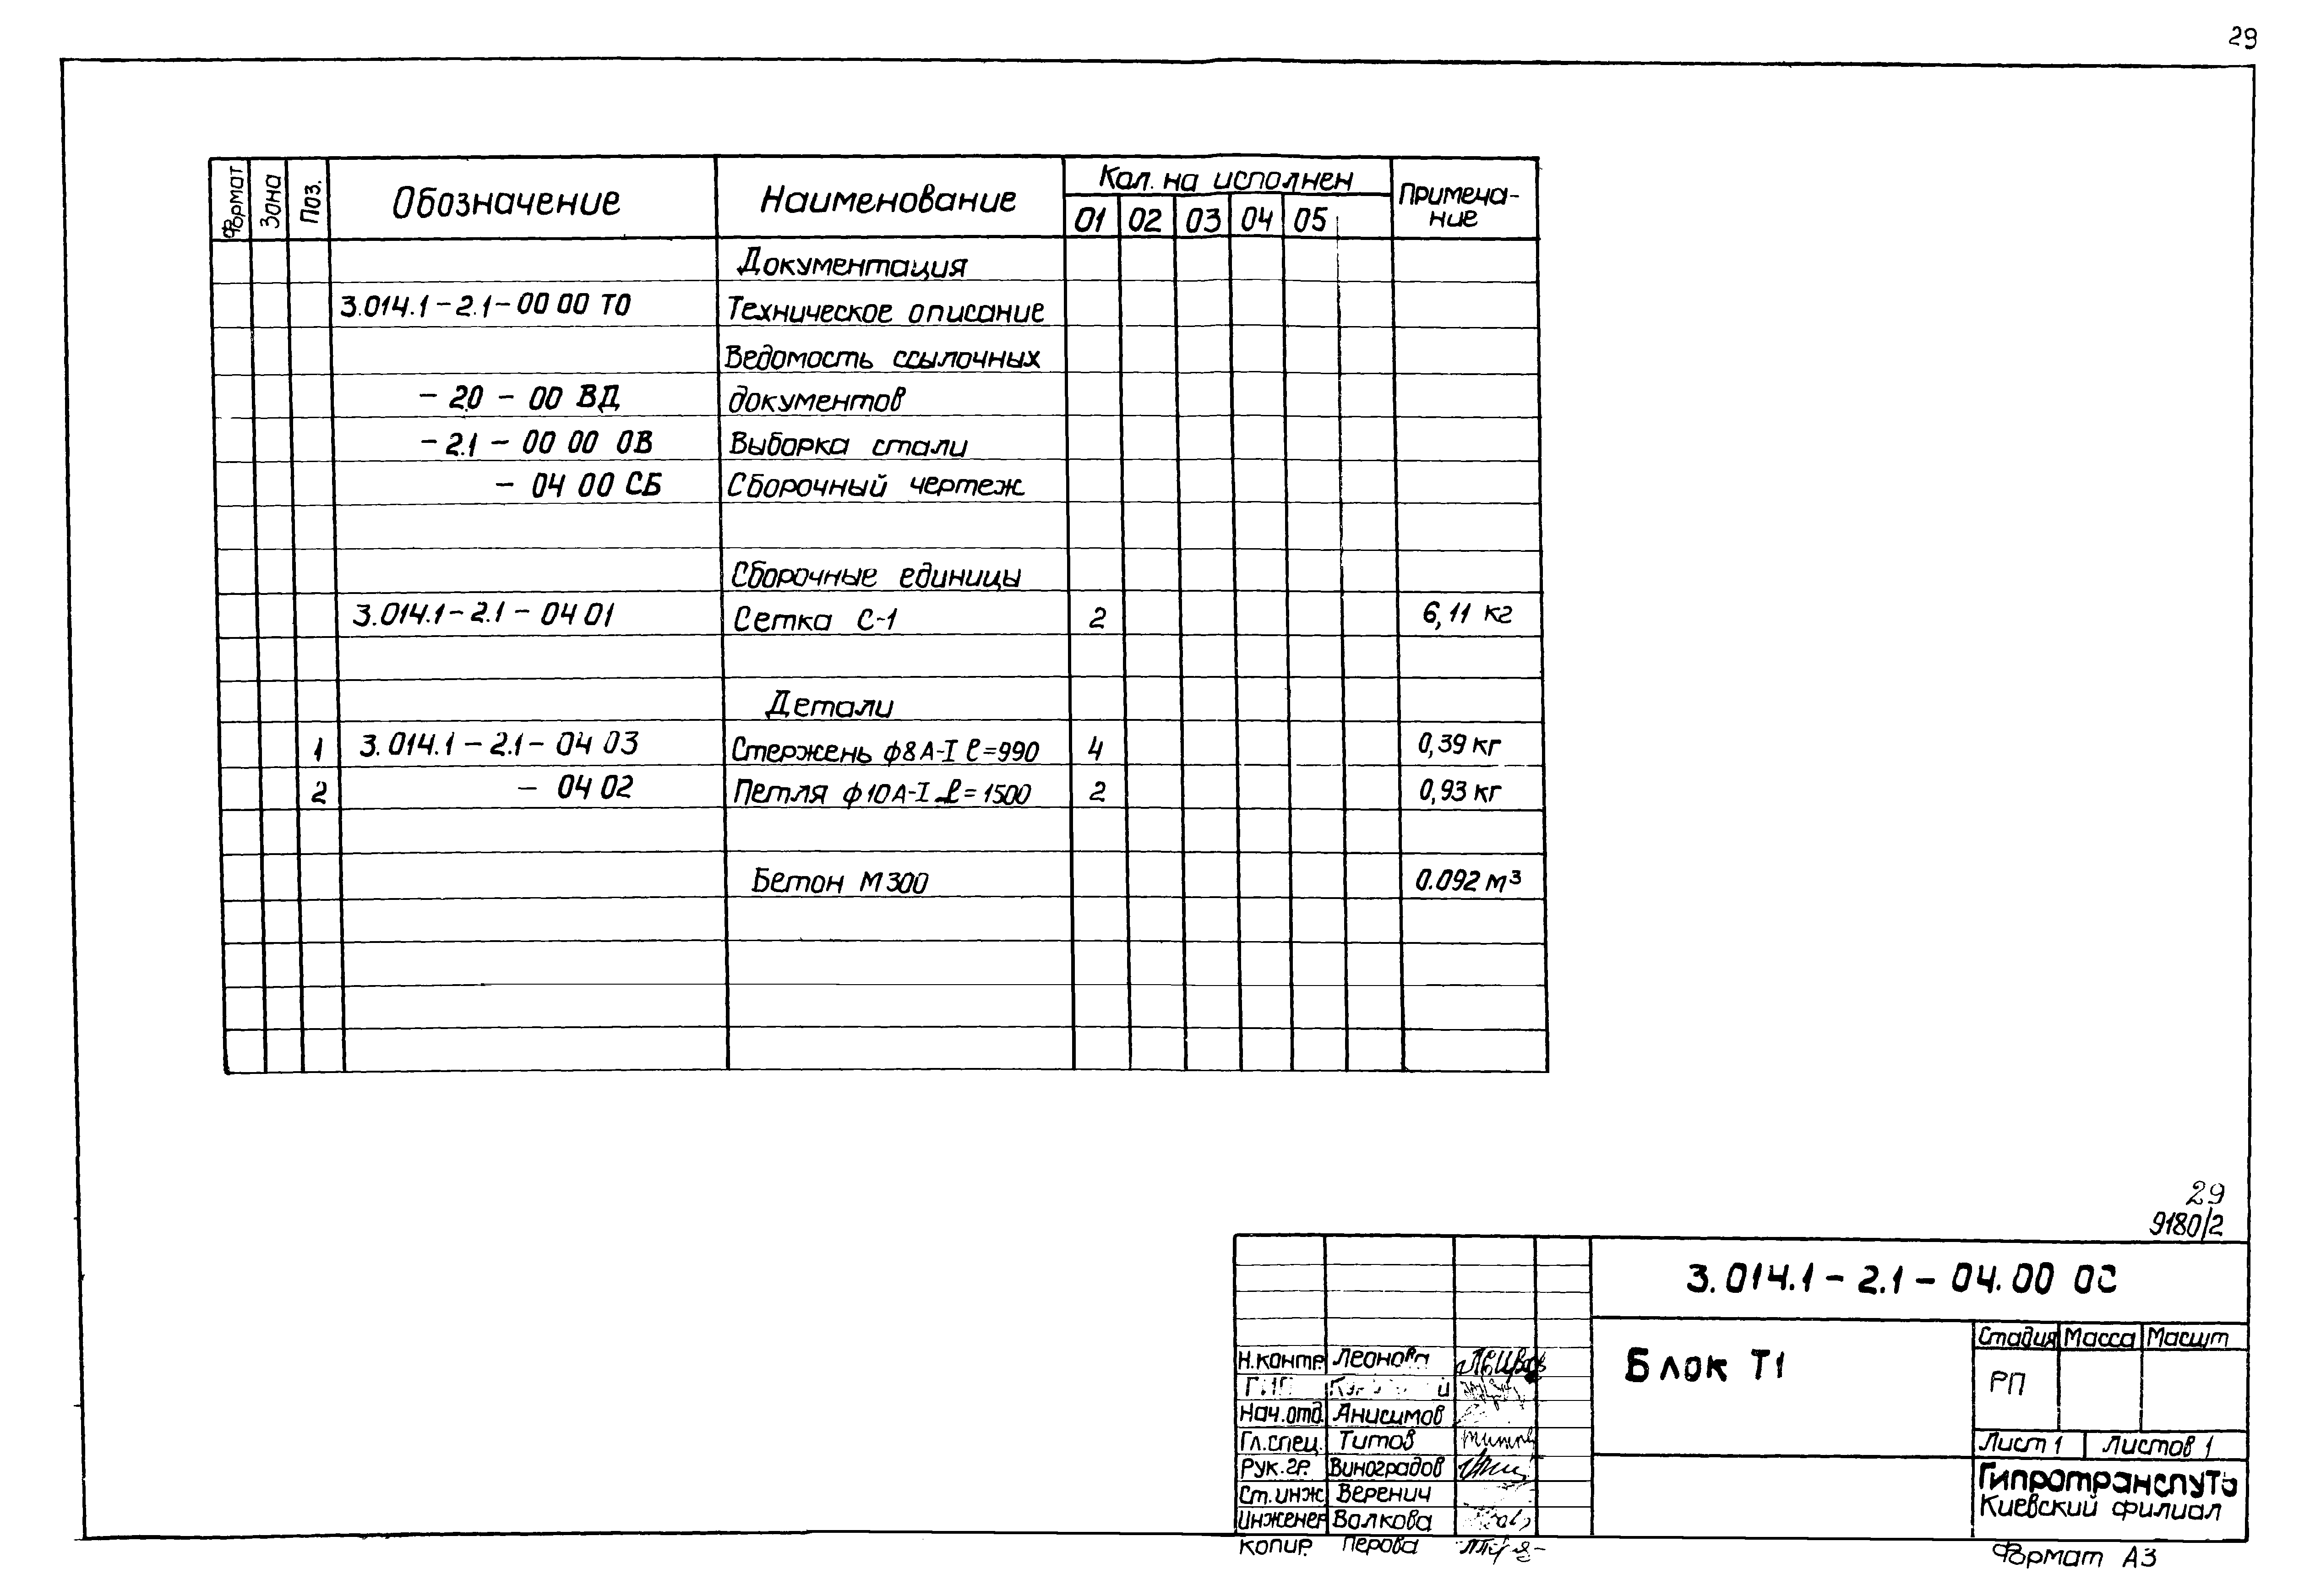 29
Формат Зона Поз. Обозначение Наименование Кол. на исполнен Примеча-
ние
01 02 03 04 05
Документация
3.014.1-2.1-00 00 ТО Техническое описание
Ведомость ссылочных
- 2.0 - 00 ВД документов
- 2.1 - 00 00 ОВ Выборка стали
- 04 00 СБ Сборочный чертеж
Сборочные единицы
3.014.1-2.1-04 01 Сетка С-1 2 6,11 кг
Детали
1 3.014.1-2.1-04 03 Стержень ф8А-I ℓ=990 4 0,39 кг
2 - 04 02 Петля ф10А-I ℓ=1500 2 0,93 кг
Бетон М300 0.092 м³
29
9180/2
3.014.1-2.1-04.00 ОС
Блок Т1
Стадия Масса Масшт
РП
Лист 1 Листов 1
Гипротранспуть
Киевский филиал
Н.контр Леонова
ГИП
Нач.отд. Анисимов
Гл.спец. Титов
Рук.гр. Виноградов
Ст.инж Веренич
Инженер Волкова
Копир. Перова
Формат А3